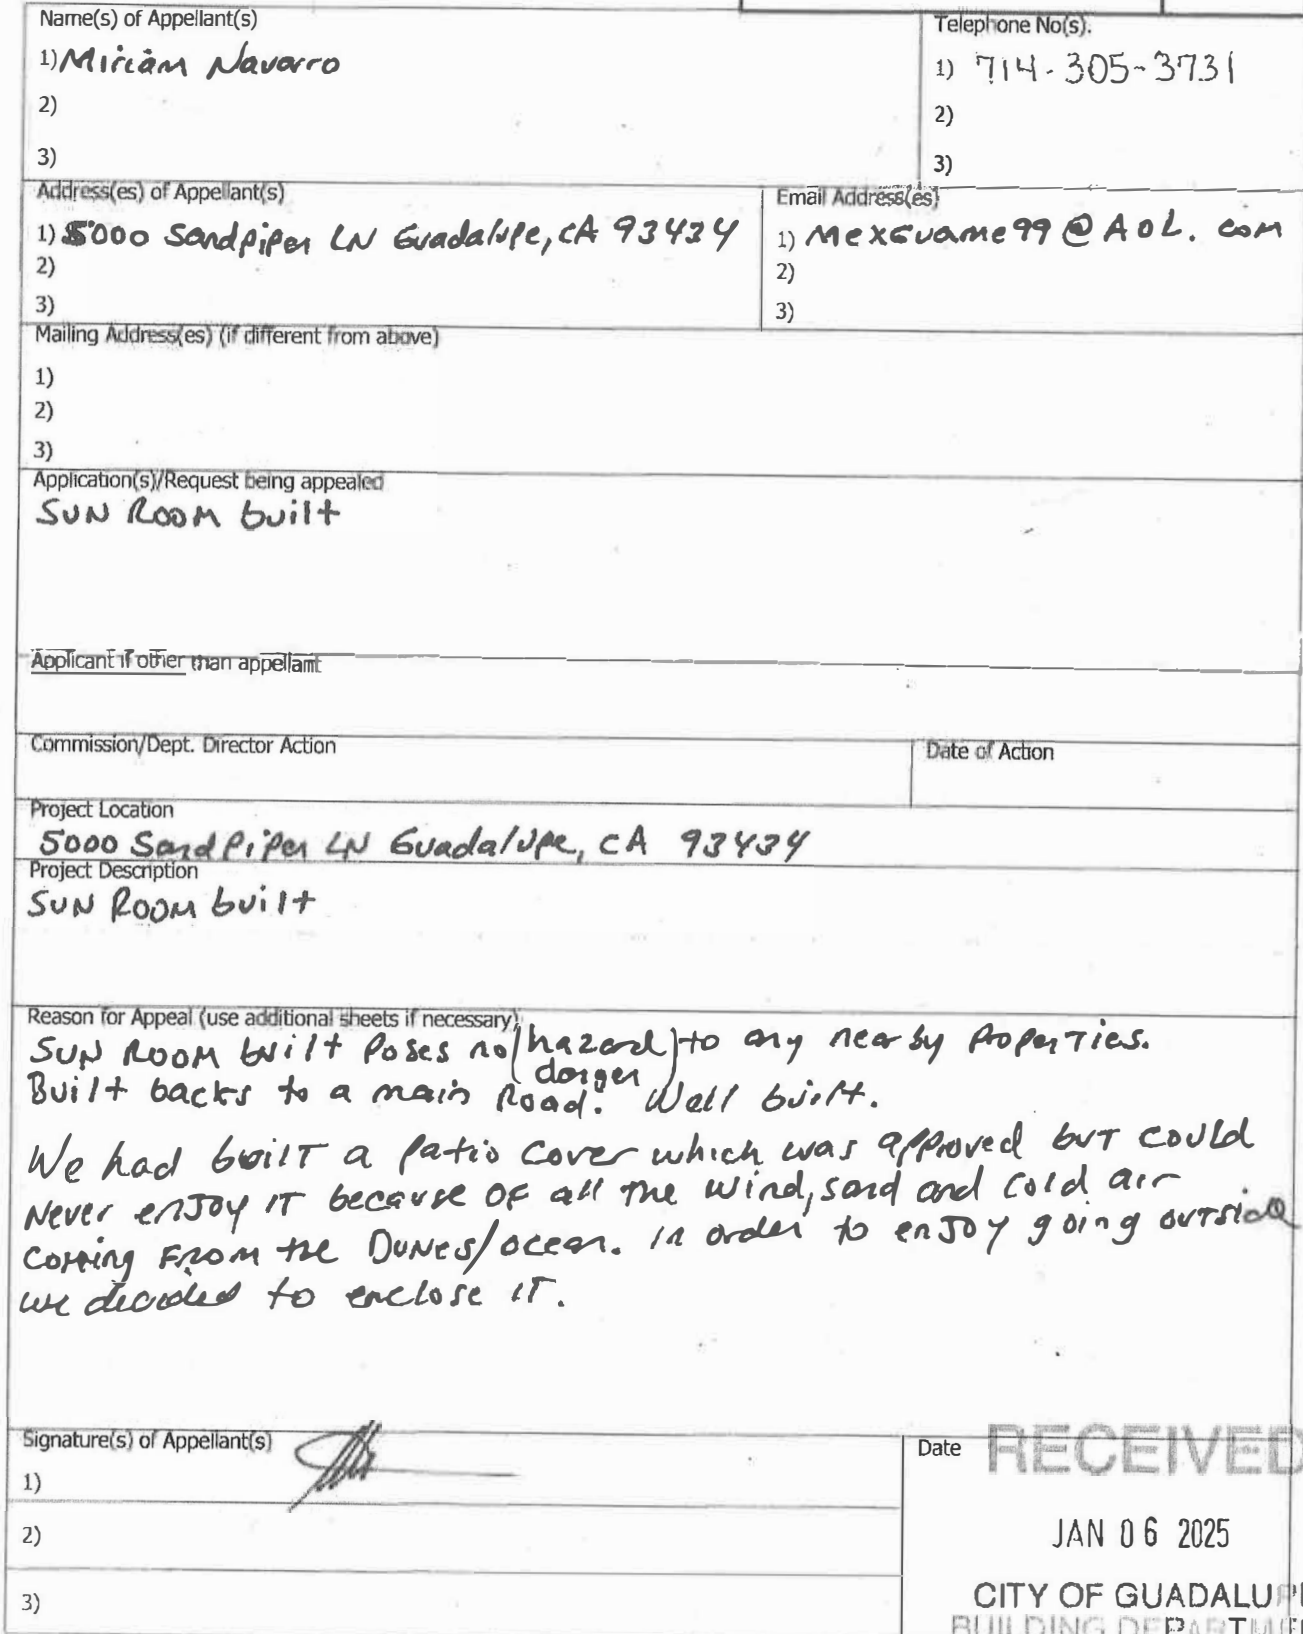 Name(s) of Appellant(s)
Telephone No(s).
1) Miriam Navarro
1) 714-305-3731
2)
2)
3)
3)
Address(es) of Appellant(s)
Email Address(es)
1) 5000 Sandpiper LN Guadalupe, CA 93434
1) MexGuame99@AOL.com
2)
2)
3)
3)
Mailing Address(es) (if different from above)
1)
2)
3)
Application(s)/Request being appealed
SUN ROOM built
Applicant if other than appellant
Commission/Dept. Director Action
Date of Action
Project Location
5000 SandPiper LN Guadalupe, CA 93434
Project Description
SUN ROOM built
Reason for Appeal (use additional sheets if necessary)
SUN ROOM built Poses no (hazard) to any nearby Properties.
danger
Built backs to a main Road. Well built.
We had built a patio cover which was approved but could
Never enjoy it because of all the wind, sand and cold air
coming from the Dunes/ocean. in order to enjoy going outside
we decided to enclose it.
Signature(s) of Appellant(s)
Date
RECEIVED
1)
2)
JAN 06 2025
3)
CITY OF GUADALUP
BUILDING DEPARTME